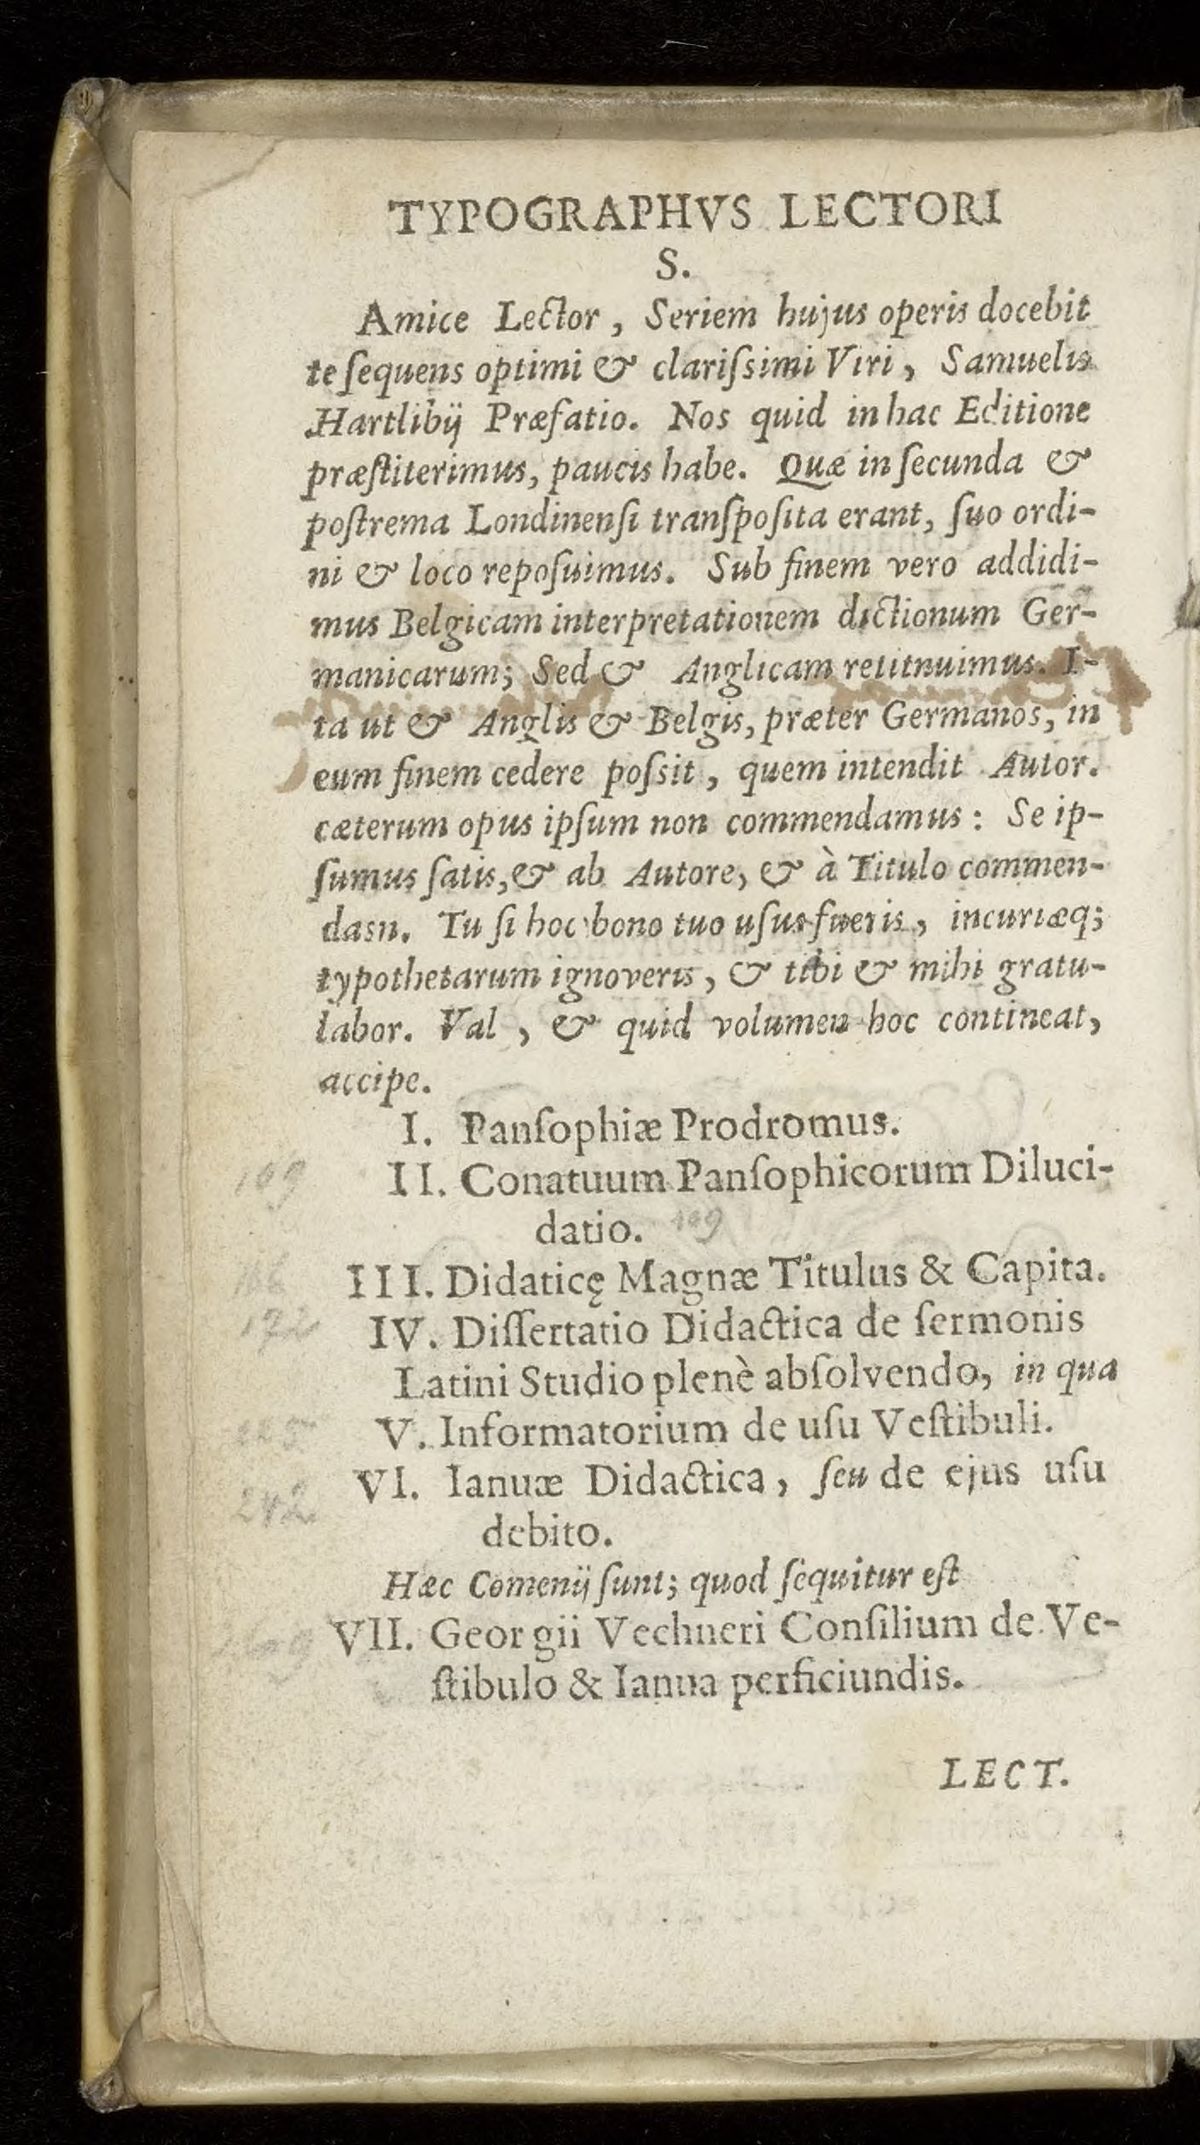 TYPOGRAPHVS LECTORI
S.
Amice Lector, Seriem hujus operis docebit
te ſequens optimi & clariſsimi Viri, Samuelis
Hartlibij Præfatio. Nos quid in hac Editione
præſtiterimus, paucis habe. Quæ in ſecunda &
poſtrema Londinenſi tranſpoſita erant, ſuo ordi-
ni & loco repoſuimus. Sub finem vero addidi-
mus Belgicam interpretationem dictionum Ger-
manicarum; Sed & Anglicam retitnuimus. I-
ta ut & Anglis & Belgis, præter Germanos, in
eum finem cedere poſsit, quem intendit Autor.
cæterum opus ipſum non commendamus: Se ip-
ſumus ſatis, & ab Autore, & à Titulo commen-
dasn. Tu ſi hoc bono tuo uſus fueris, incuriæq;
typothetarum ignoveris, & tibi & mihi gratu-
labor. Val , & quid volumen hoc contineat,
accipe.
I. Panſophiæ Prodromus.
109
II. Conatuum Panſophicorum Diluci-
datio. 109
III. Didaticę Magnæ Titulus & Capita.
172
IV. Diſſertatio Didactica de ſermonis
Latini Studio plenè abſolvendo, in qua
V. Informatorium de uſu Veſtibuli.
242
VI. Ianuæ Didactica, ſeu de ejus uſu
debito.
Hæc Comenij ſunt; quod ſequitur eſt
VII. Georgii Vechneri Conſilium de Ve-
ſtibulo & Ianua perficiundis.
LECT.